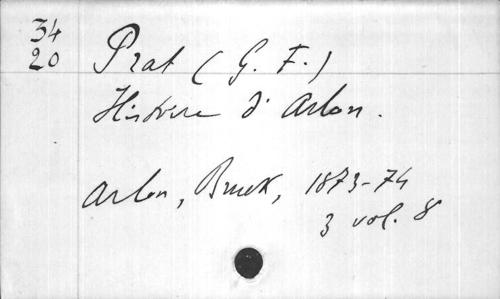 34
20
Prat (G. F.)
Histoire d'Arlon.
Arlon, Bruck, 1873-74
3 vol. 8